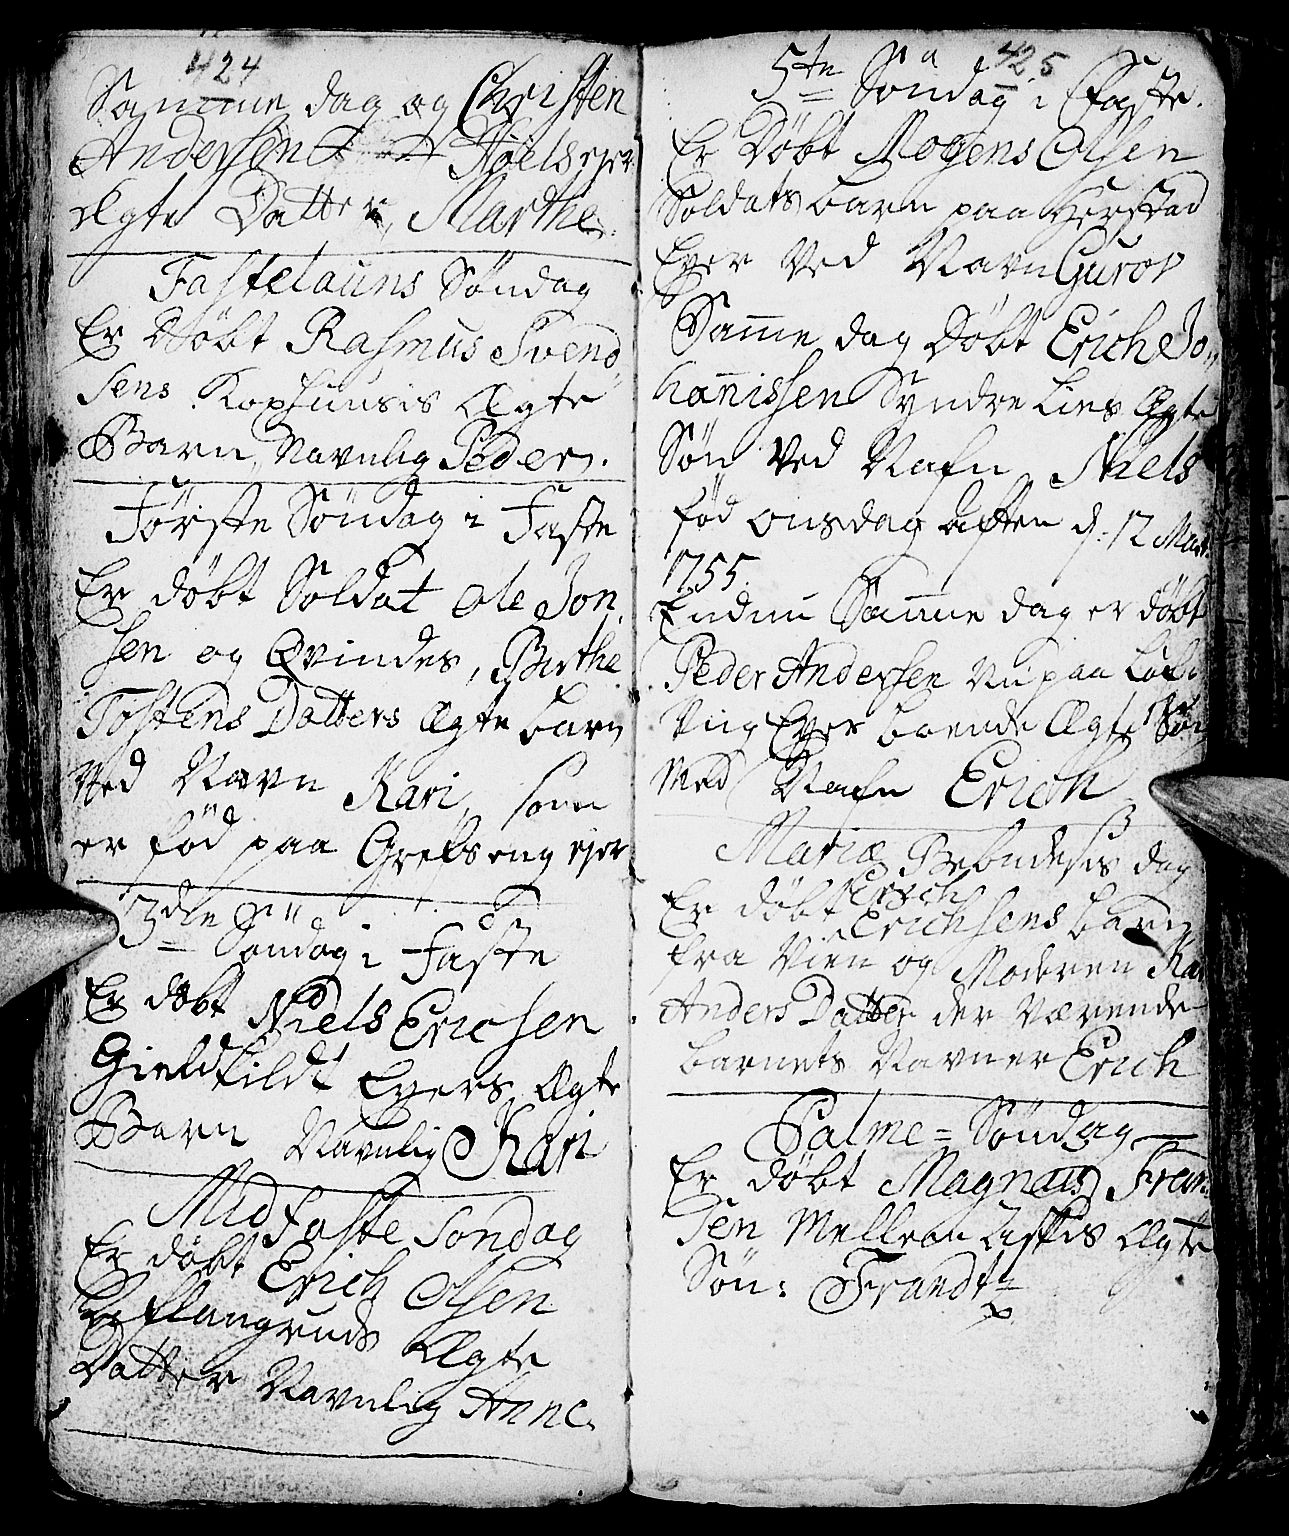 424
Samme dag og Christen
Andersen Støels ejer
Ægte Datter, Marthe.
Fastelauns Søndag
Er Døbt Rasmus Svend,
sens Kophuusis Ægte
Barn, Navnlig Peder.
Første Søndag i Faste
Er døbt Soldat Ole Jon,
sen og Qvindes, Birthe
Tostens Datters Ægte barn
Ved Navn Kari, som
er fød paa Grefs eng ejer
3die Søndag i Faste
Er døbt Niels Ericsen
Gieldkildt Eyers Ægte
Barn Navnlig Kari
Mid faste Søndag
Er døbt Erich Olsen
Ægte
Datter Navnlig Anne.
425
5te Søndag i Faste.
Er Døbt Mogens Olsen
Soldats barn paa Herstad
Eyer Ved Navn Guroe
Samme dag Døbt Erich Jo,
hannissen Syndre Lies Ægte
Søn Ved Nafn Niels
fød onsdag aften d: 12 Mart:
1755.
Endnu Samme dag er døbt
Peder Andersen Nu paa
Eyer boende Ægte Søn
Med Nafn Erich
Mariæ Bebudelses dag
Er døbt Erich
Erichsens barn
fra Vien og Moderen Kari
Anders Datter der Værende
barnets Navn er Erich
Palme = Søndag
Er døbt Magnus Fran
sen Mellem Ægte
Søn: Frandtz